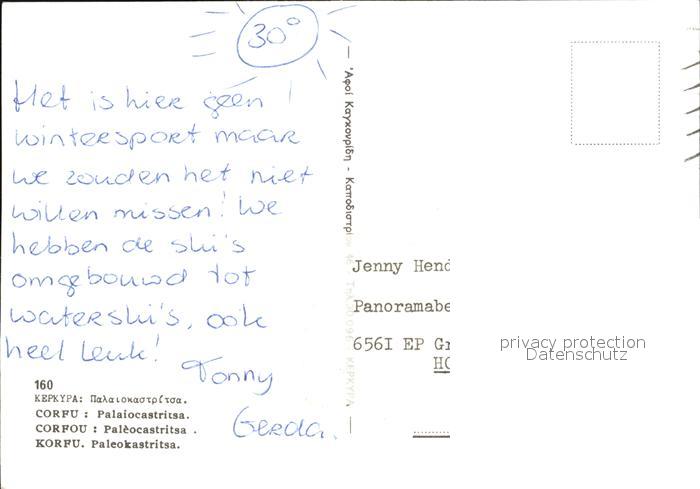 30°
Het is hier géén
wintersport maar
we zouden het niet
willen missen! We
hebben de ski's
omgebouwd tot
waterski's, ook
heel leuk!
Tonny
Gerda.
160
ΚΕΡΚΥΡΑ: Παλαιοκαστρίτσα.
CORFU : Palaiocastritsa.
CORFOU : Palèocastritsa .
KORFU. Paleokastritsa.
Ἀφοί Καγκουρίδη - Καποδιστρί
Jenny Hend
Panoramabe
656I EP Gr
HO
privacy protection
Datenschutz